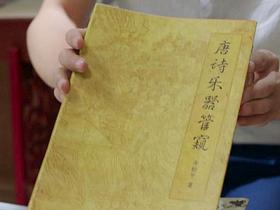 唐诗乐器管窥